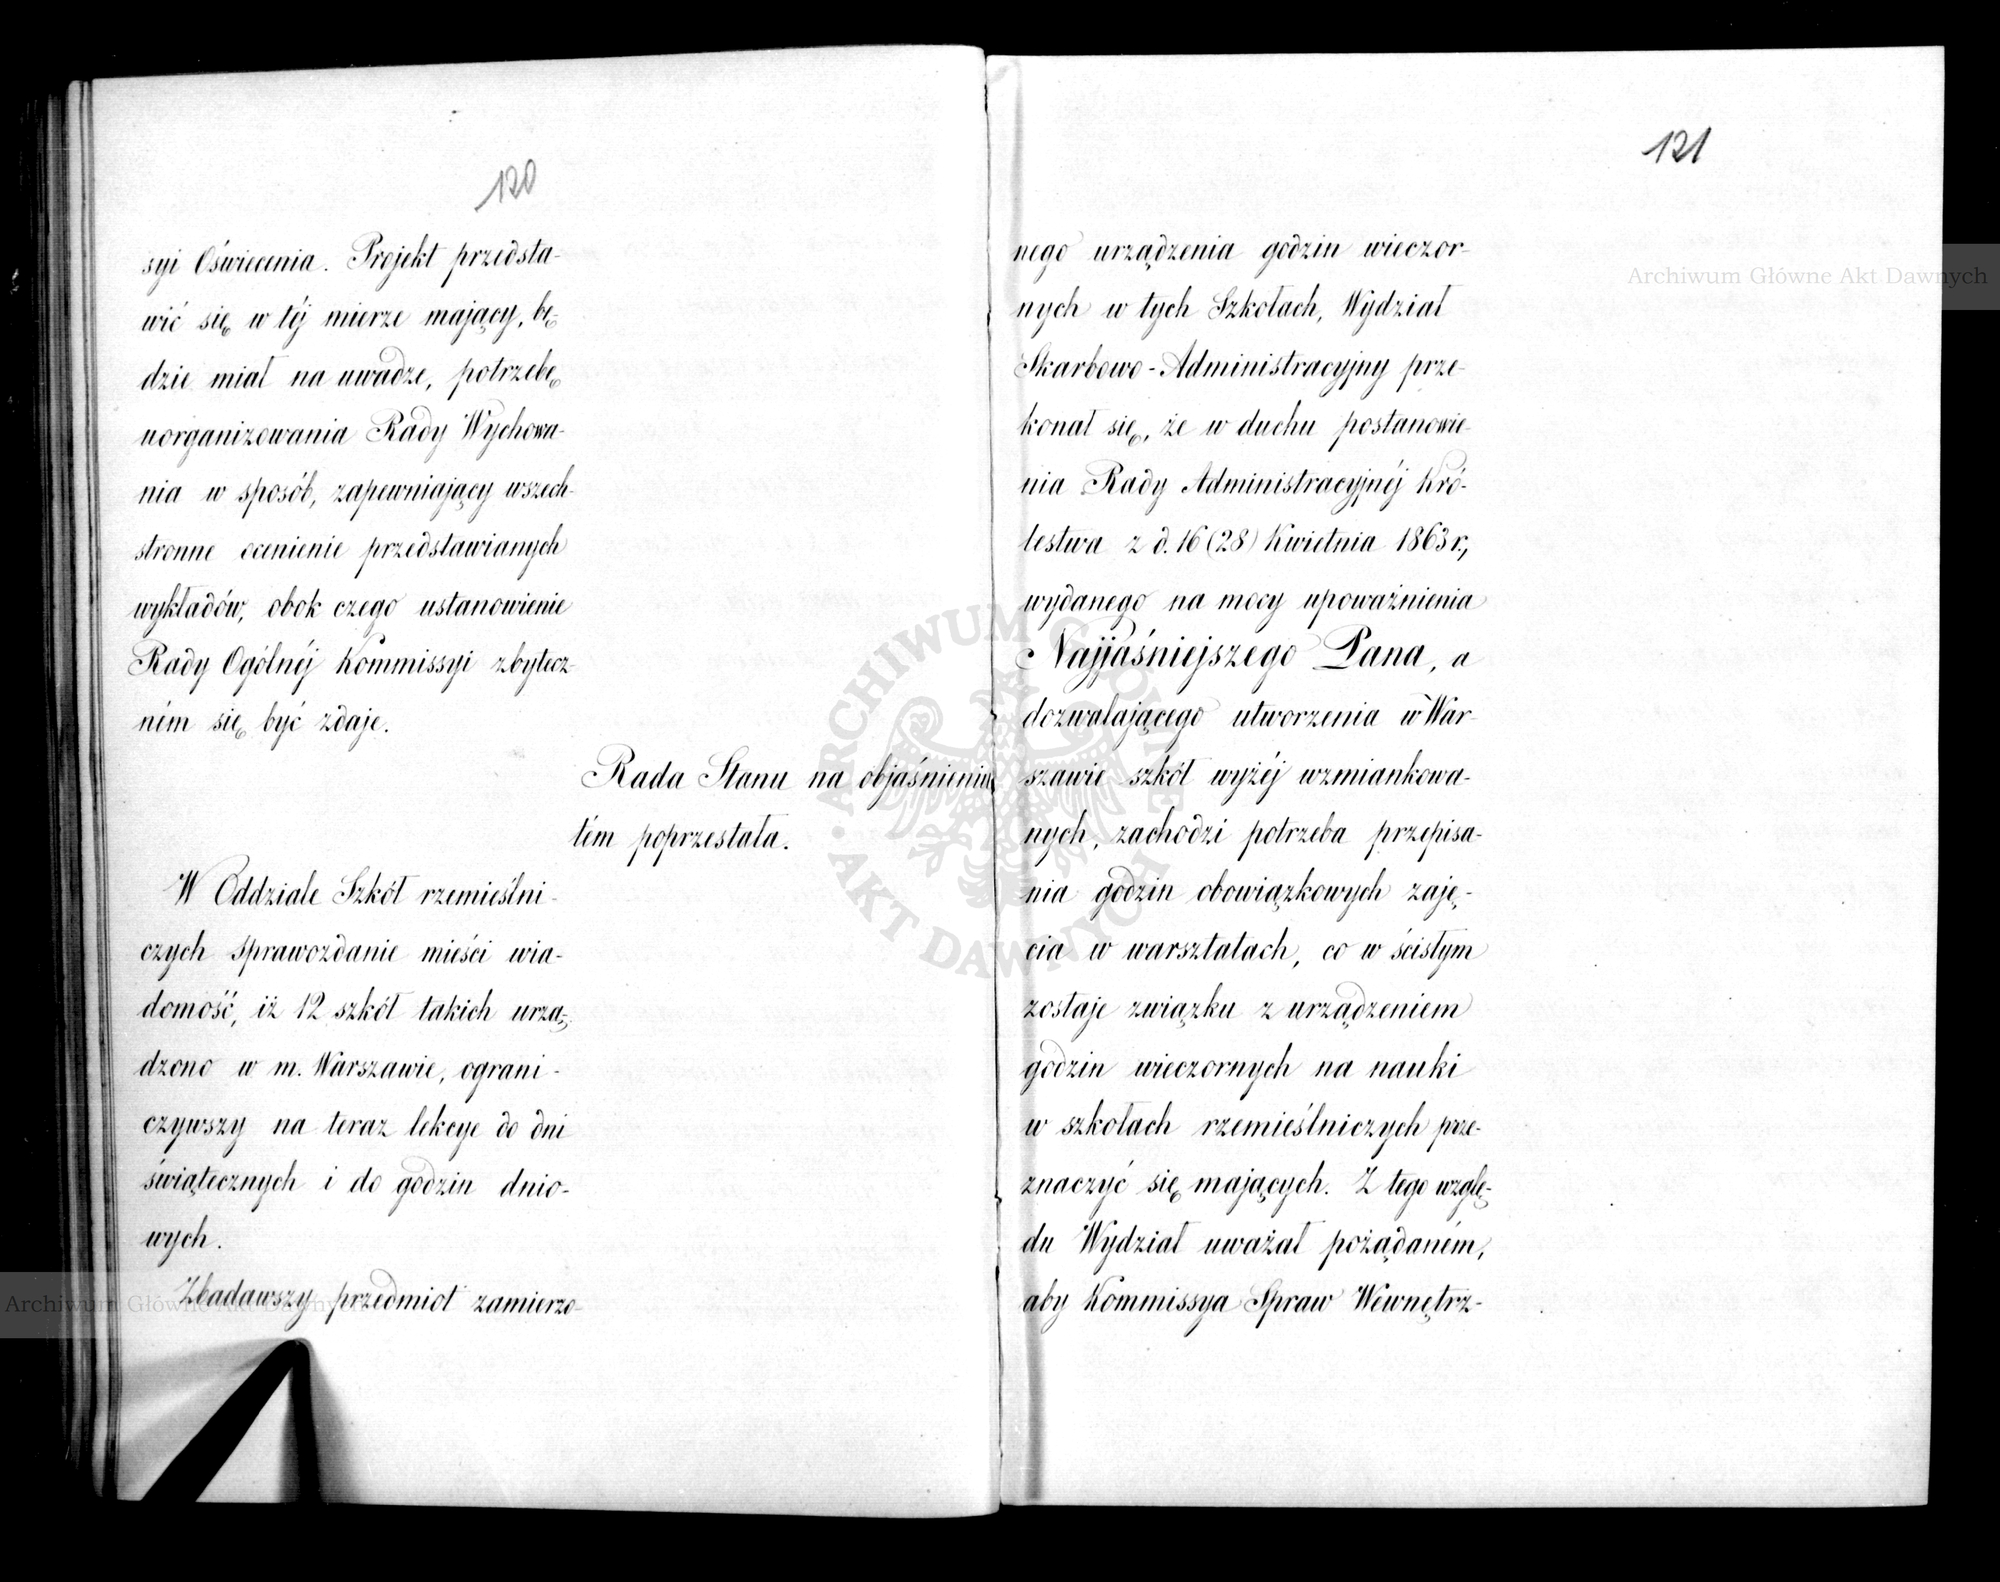 120
syi Oświecenia. Projekt przedsta-
wić się w téj mierze mający, bę-
dzie miał na uwadze, potrzebę
uorganizowania Rady Wychowa-
nia w sposób, zapewniający wszech-
stronne ocenienie przedstawianych
wykładów, obok czego ustanowienie
Rady Ogólnéj Kommissyi zbytecz-
ném się być zdaje.
Rada Stanu na objaśnieniu
tém poprzestała.
W Oddziale Szkół rzemieślni-
czych sprawozdanie mieści wia-
domość, iż 12 szkół takich urzą-
dzono w m. Warszawie, ograni-
czywszy na teraz lekcye do dni
świątecznych i do godzin dnio-
wych.
Zbadawszy przedmiot zamierzo-
121
nego urządzenia godzin wieczor-
nych w tych Szkołach, Wydział
Skarbowo-Administracyjny prze-
konał się, że w duchu postanowie-
nia Rady Administracyjnéj Kró-
lestwa z d. 16 (28) Kwietnia 1863 r.,
wydanego na mocy upoważnienia
Najjaśniejszego Pana, a
dozwalającego utworzenia w War-
szawie szkół wyżéj wzmiankowa-
nych, zachodzi potrzeba przepisa-
nia godzin obowiązkowych zaję-
cia w warsztatach, co w ścisłym
zostaje związku z urządzeniem
godzin wieczornych na nauki
w szkołach rzemieślniczych prze-
znaczyć się mających. Z tego wzglę-
du Wydział uważał pożądaném,
aby Kommissya Spraw Wewnętrz-
Archiwum Główne Akt Dawnych
Archiwum Główne Akt Dawnych
ARCHIWUM GŁÓWNE AKT DAWNYCH